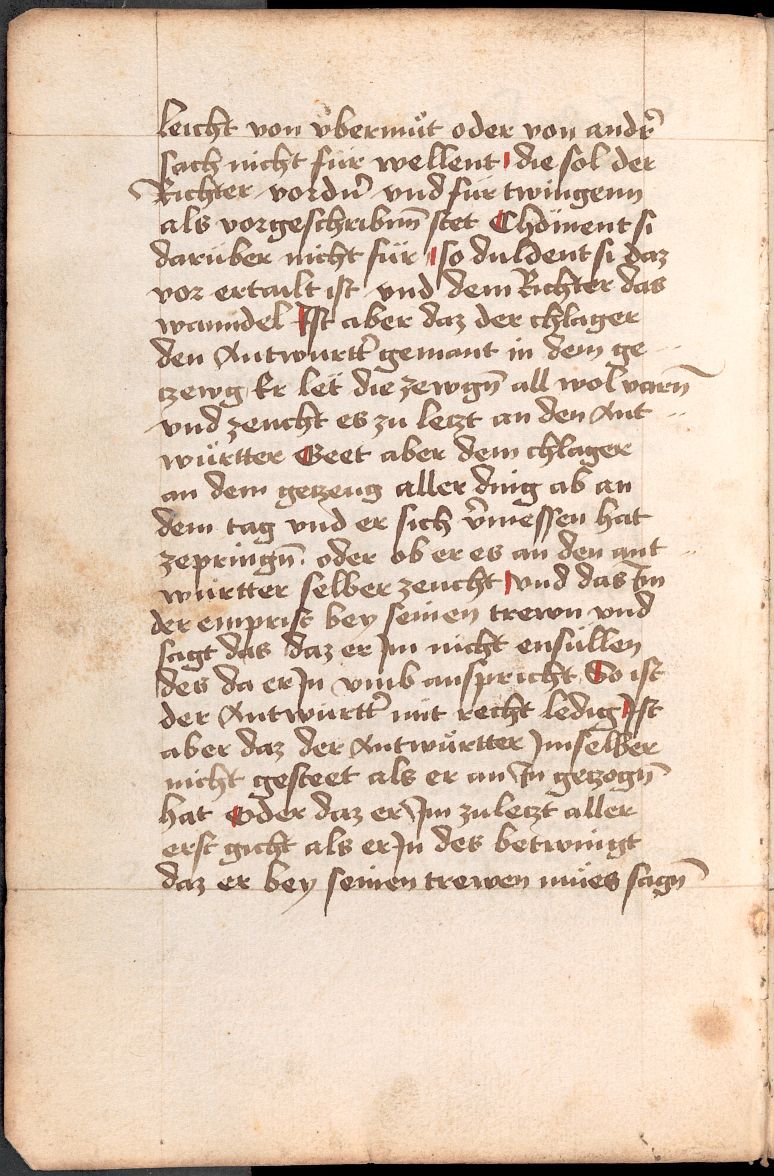 leicht von vbermuͦt oder von andr̄
sach nicht fuͤr wellent die sol der
Richter vordn̄ vnd fur twingenn
als vorgeschribnn̄ stet Choͤment si
daruber nicht fuͤr so duldent si daz
vor ertailt ist vnd dem Richter das
wanndel Ist aber daz der chlager
den Antwurtt̄ gemant in dem ge
tzewg Er let die zewgn̄ all wol varn̄
vnd zeucht es zu letzt an den Ant
wuͤrtter Geet aber dem chlager
an dem getzeug aller ding ab an
dem tag vnd er sich v̄messen hat
zepringn̄. oder ob er es an den ant
wurtter selber zeucht vnd das Im
der emprist bey seinen trewn vnd
sagt das daz er Im nicht ensuͤllen
des da er In vmb anspricht So ist
der Antwuͤrtt̄ mit recht ledig Ist
aber daz der Antwuͤrtter Im selber
nicht gesteet als er an In getzogn̄
hat Oder daz er Im zuletzt aller
erst gicht als er In des betwingt
daz er bey seinen trewen muͤes sagn̄